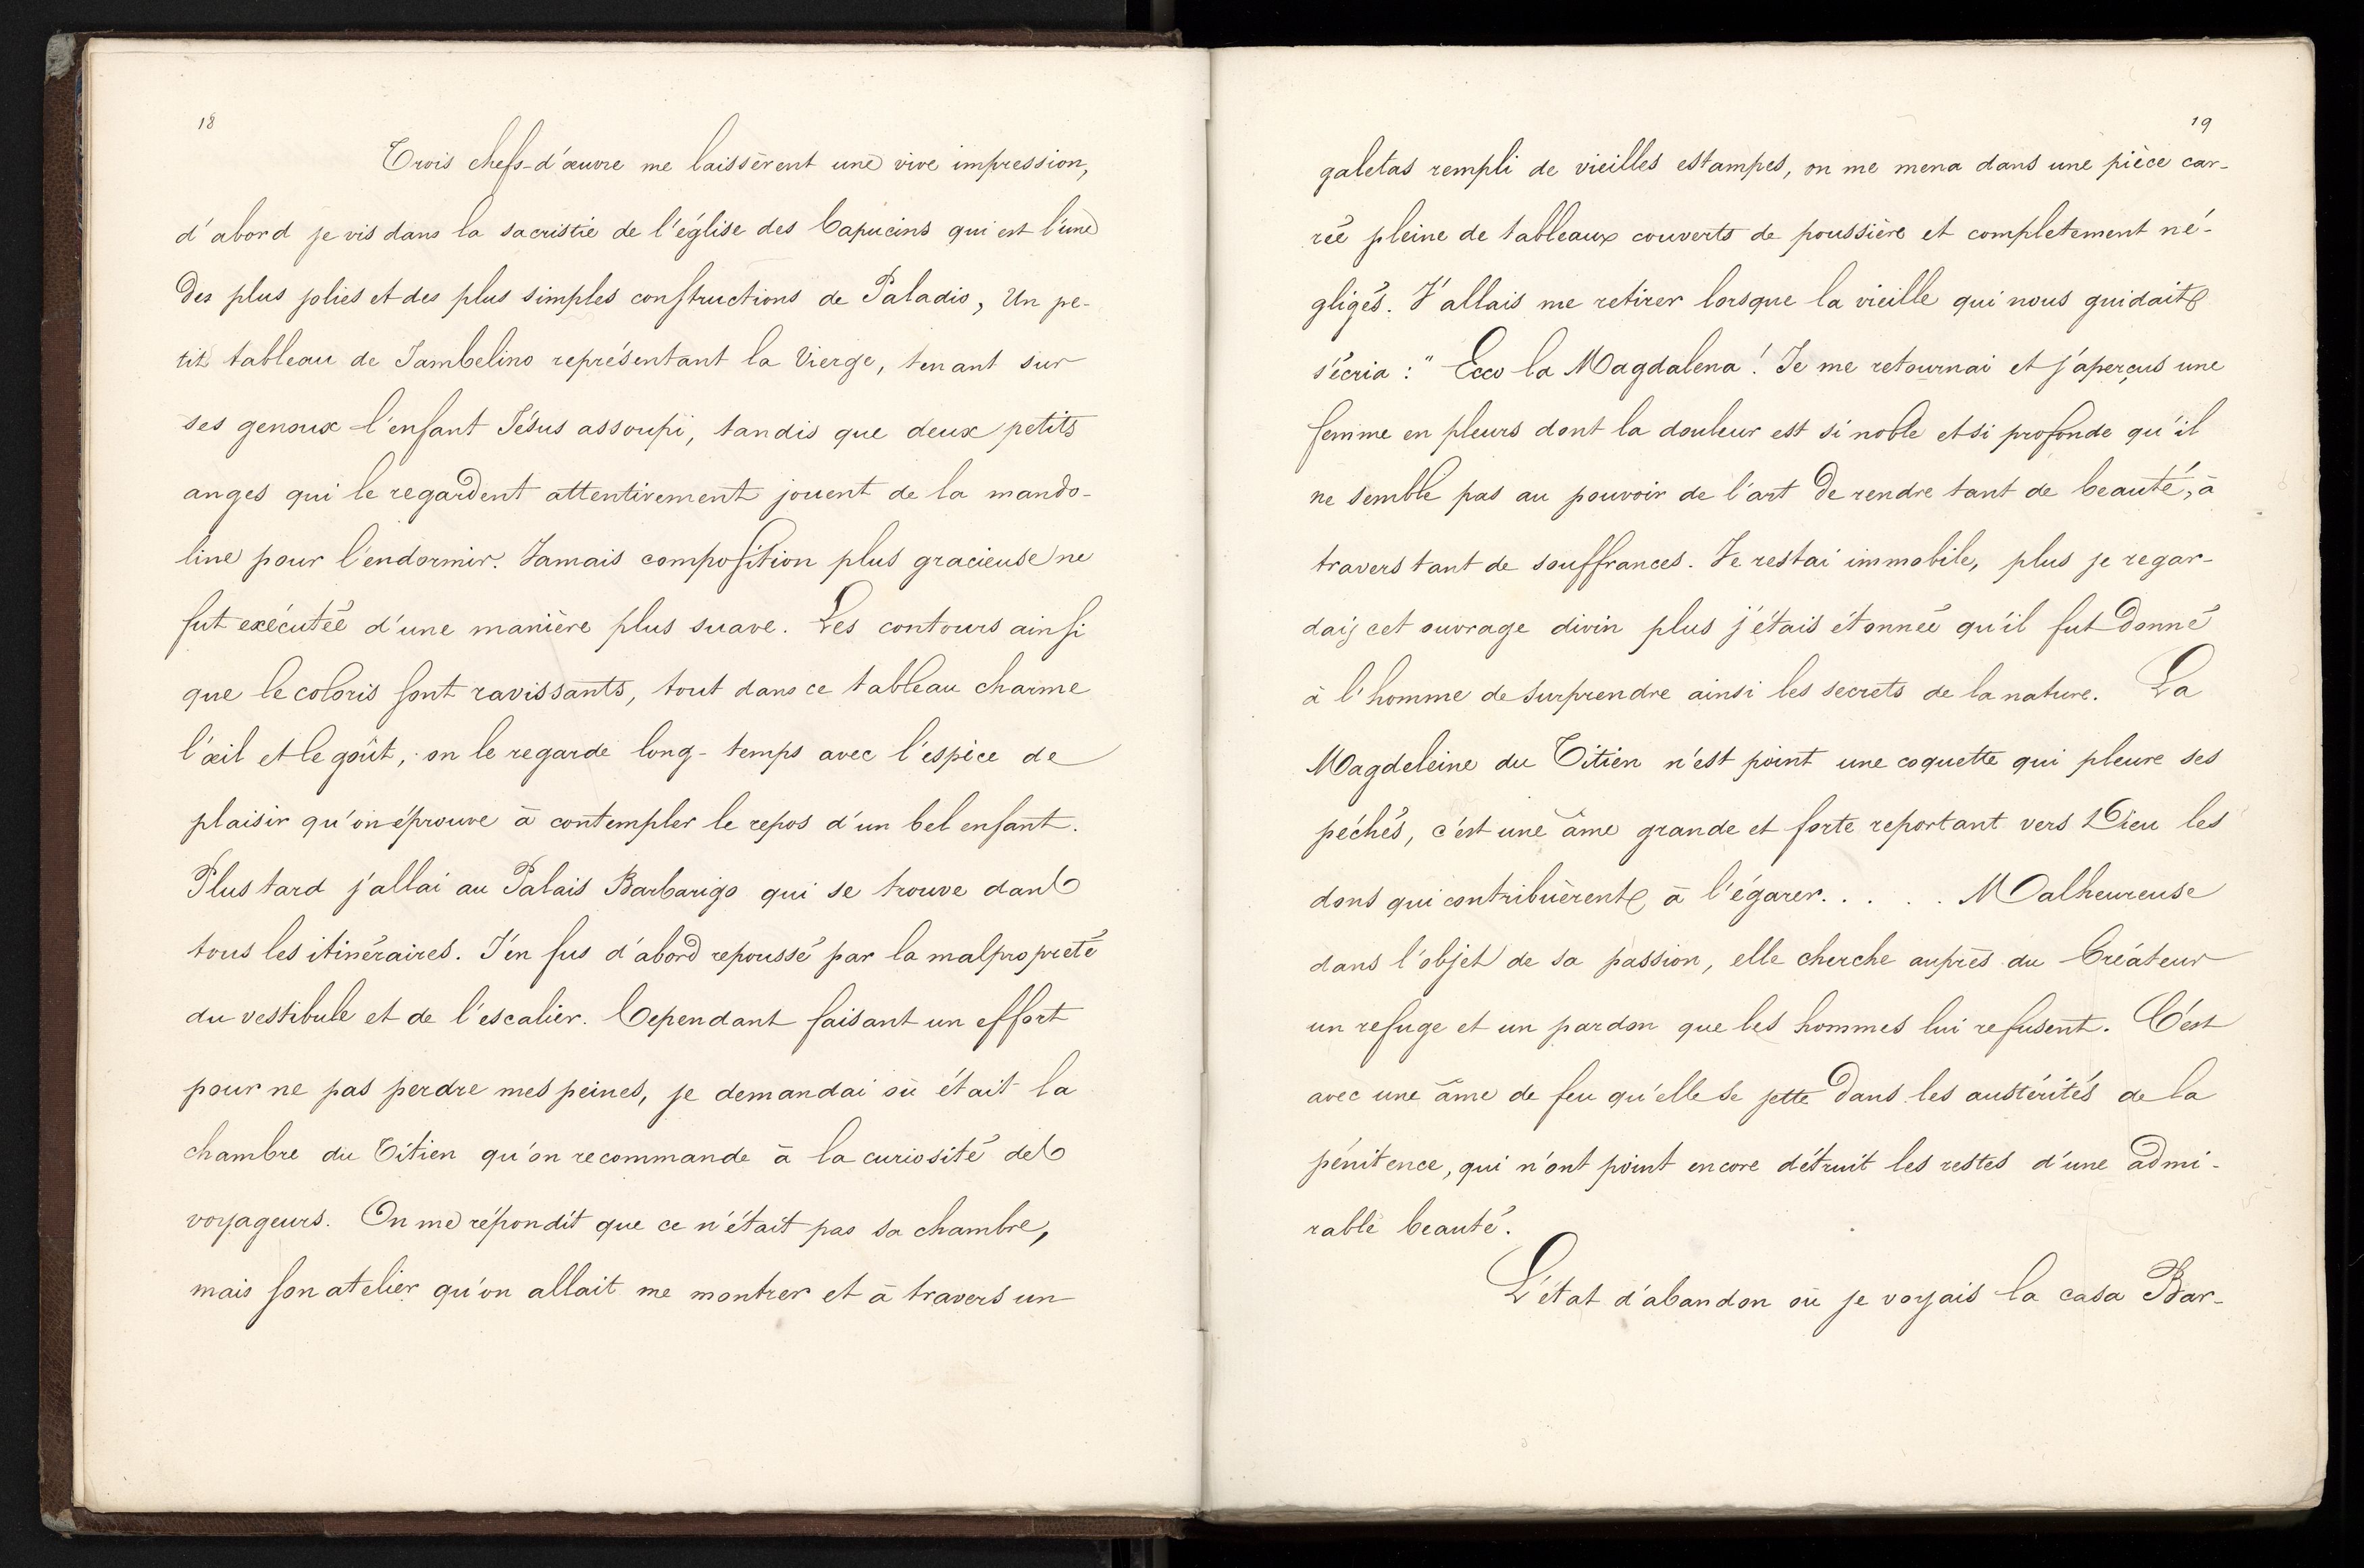 18
Trois chefs-d'œuvre me laissèrent une vive impression,
d'abord je vis dans la sacristie de l'église des Capucins qui est l'une
des plus jolies et des plus simples constructions de Paladio, Un pe-
tit tableau de Jambelino représentant la Vierge, tenant sur
ses genoux l'enfant Jésus assoupi, tandis que deux petits
anges qui le regardent attentivement jouent de la mando-
line pour l'endormir. Jamais composition plus gracieuse ne
fut exécutée d'une manière plus suave. Les contours ainsi
que le coloris sont ravissants, tout dans ce tableau charme
l'œil et le goût, on le regarde long-temps avec l'espèce de
plaisir qu'on éprouve à contempler le repos d'un bel enfant.
Plus tard j'allai au Palais Barbarigo qui se trouve dans
tous les itinéraires. J'en fus d'abord repoussé par la malpropreté
du vestibule et de l'escalier. Cependant faisant un effort
pour ne pas perdre mes peines, je demandai où était la
chambre du Titien qu'on recommande à la curiosité des
voyageurs. On me répondit que ce n'était pas sa chambre,
mais son atelier qu'on allait me montrer et à travers un
19
galetas rempli de vieilles estampes, on me mena dans une pièce car-
rée pleine de tableaux couverts de poussière et completement né-
gligés. J'allais me retirer lorsque la vieille qui nous guidait
s'écria : " Ecco la Magdalena ! Je me retournai et j'aperçus une
femme en pleurs dont la douleur est si noble et si profonde qu'il
ne semble pas au pouvoir de l'art de rendre tant de beauté, à
travers tant de souffrances. Je restai immobile, plus je regar-
dais cet ouvrage divin plus j'étais étonnée qu'il fut donné
à l'homme de surprendre ainsi les secrets de la nature. La
Magdeleine du Titien n'est point une coquette qui pleure ses
péchés, c'est une âme grande et forte reportant vers Dieu les
dons qui contribuèrent à l'égarer. . . . . Malheureuse
dans l'objet de sa passion, elle cherche auprès du Créateur
un refuge et un pardon que les hommes lui refusent. C'est
avec une âme de feu qu'elle se jette dans les austérités de la
pénitence, qui n'ont point encore détruit les restes d'une admi-
rable beauté.
L'état d'abandon où je voyais la casa Bar-